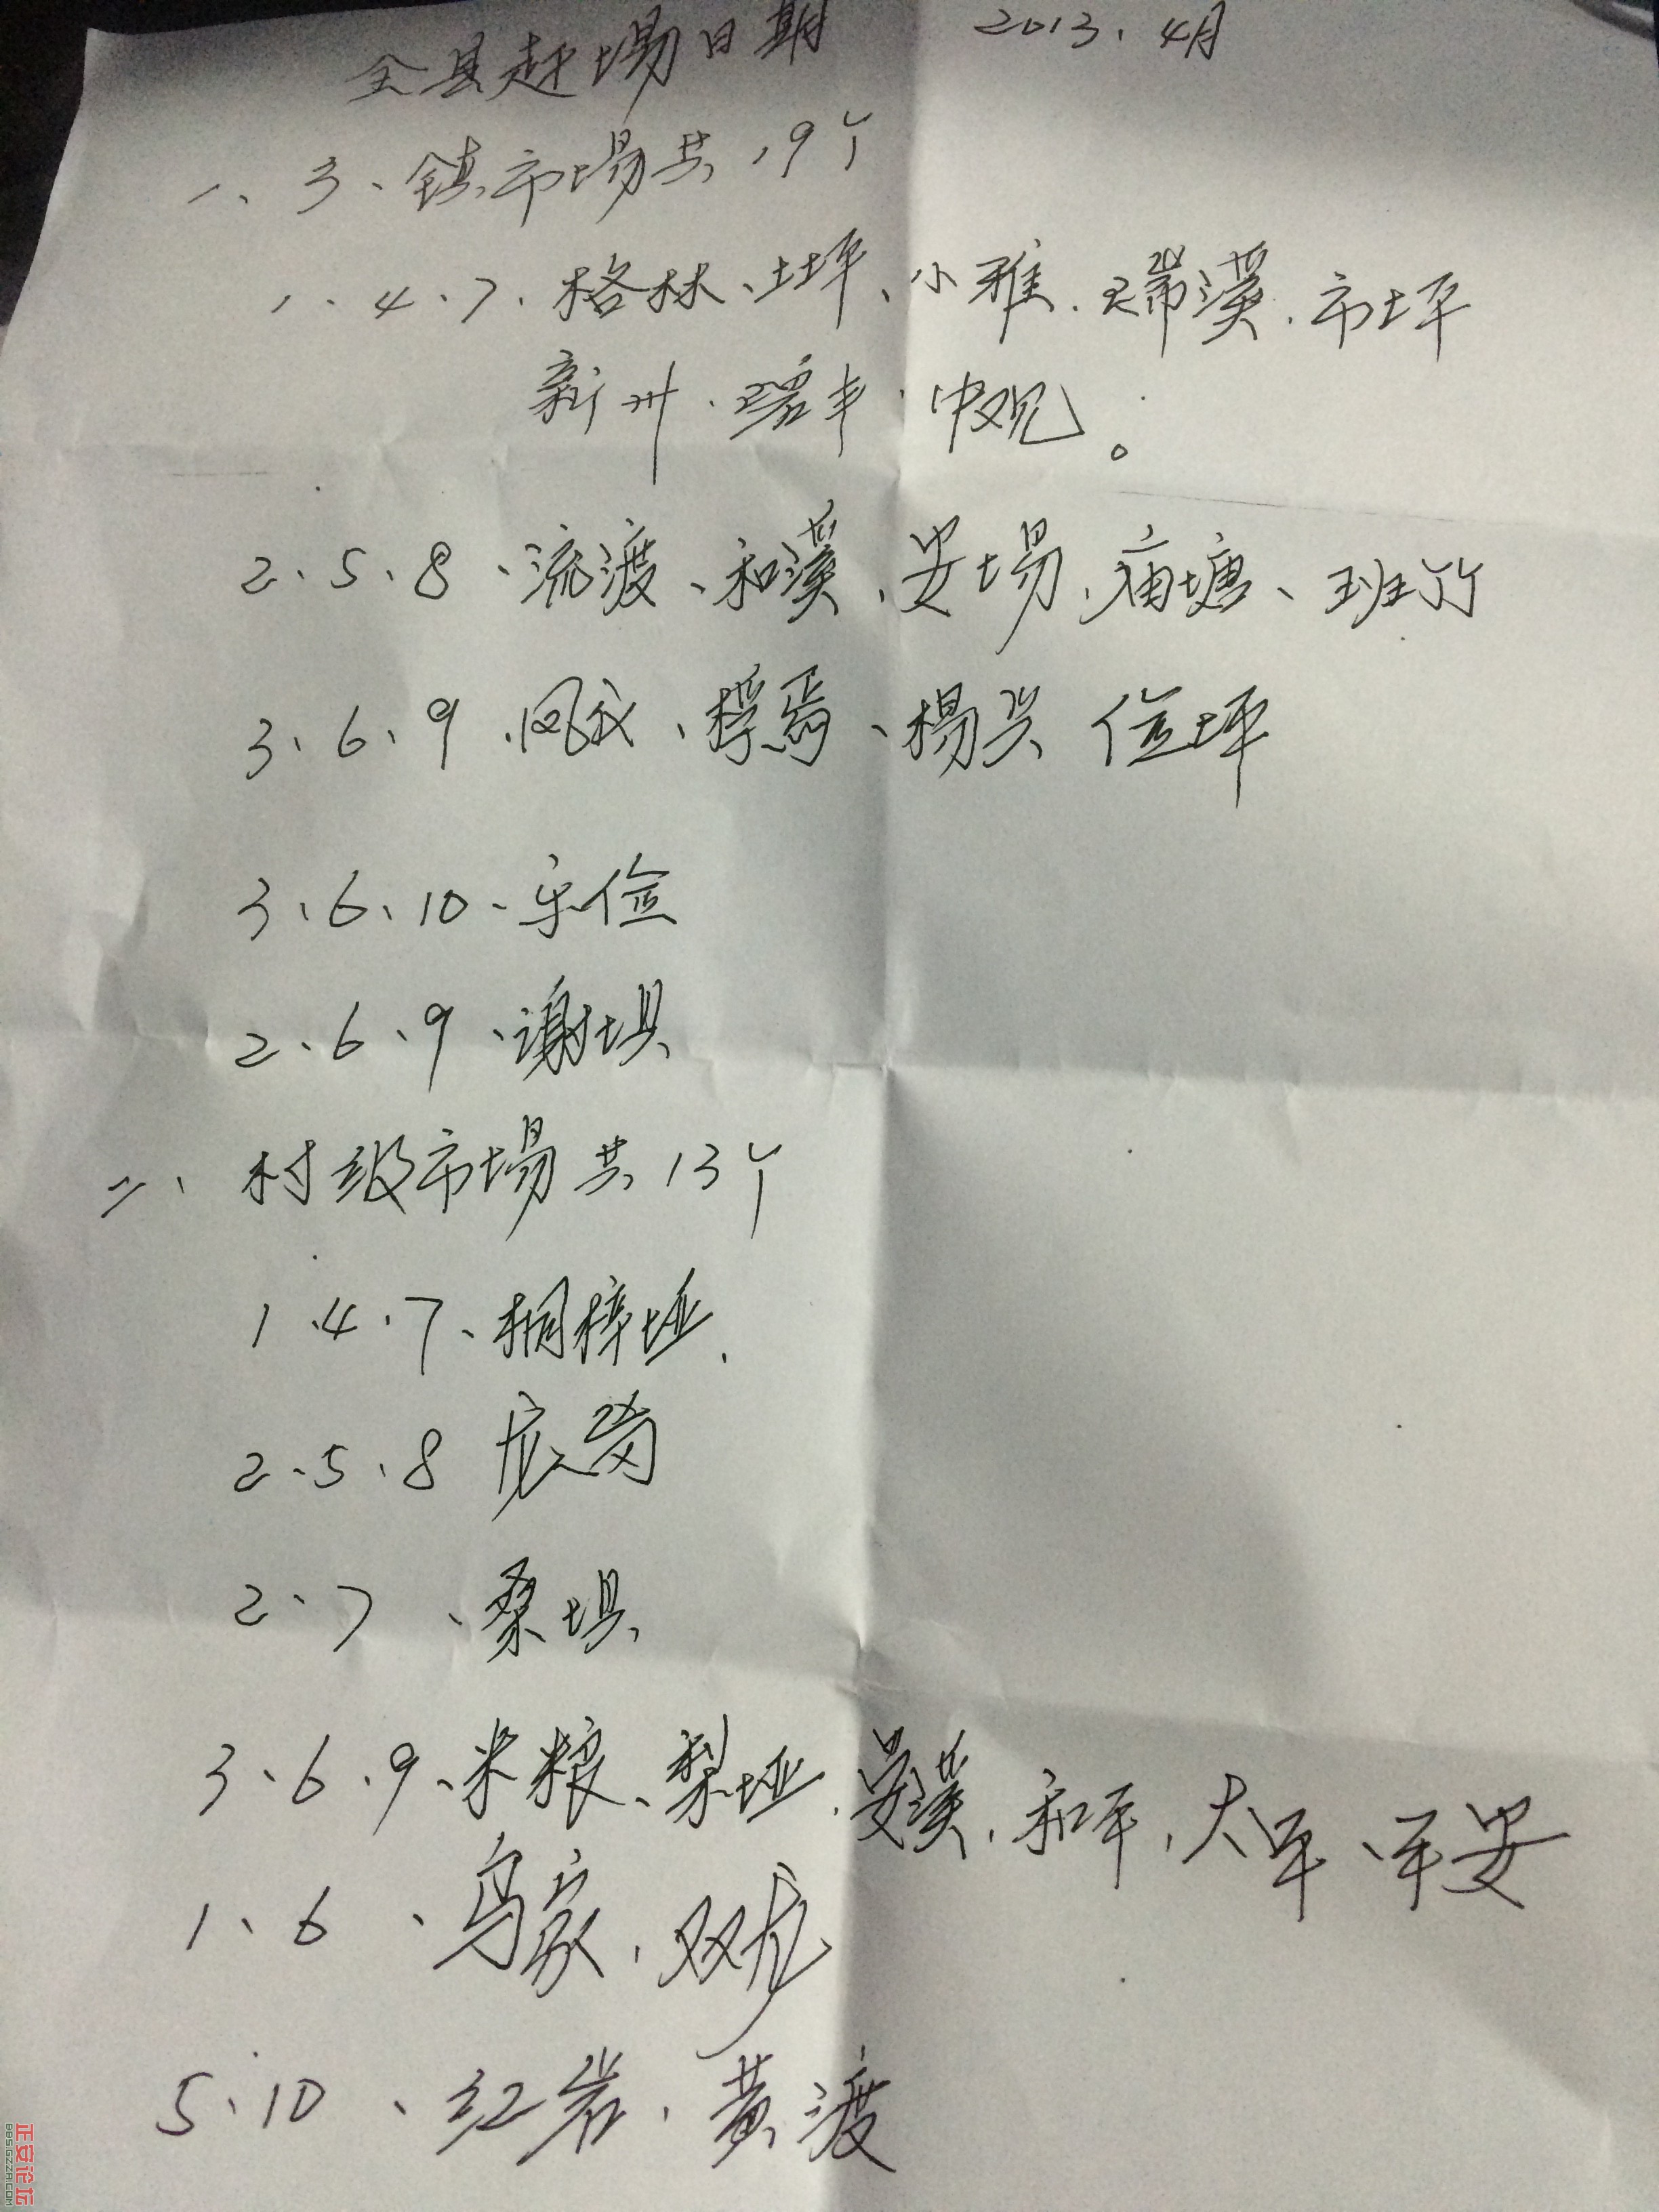 全县赶场日期 2013、4月
一、乡、镇市场共19个
1、4、7、格林、土坪、小雅、瑞溪、市坪
新州、瑞丰、中观。
2、5、8、流渡、和溪、安场、庙塘、班竹
3、6、9、凤仪、桴焉、杨兴 俭坪
3、6、10、乐俭
2、6、9、谢坝
二、村级市场共13个
1、4、7、桐梓垭、
2、5、8
2、7、桑坝
3、6、9、米粮、梨垭、安溪、和平、大平、平安
1、6、乌家、双龙
5、10、红岩、黄渡
正安论坛
BBSGZZA.COM